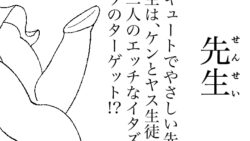 先生
せんせい
キュートでやさしい先
生は、ケンとヤス生徒
二人のエッチなイタズ
ラのターゲット!?